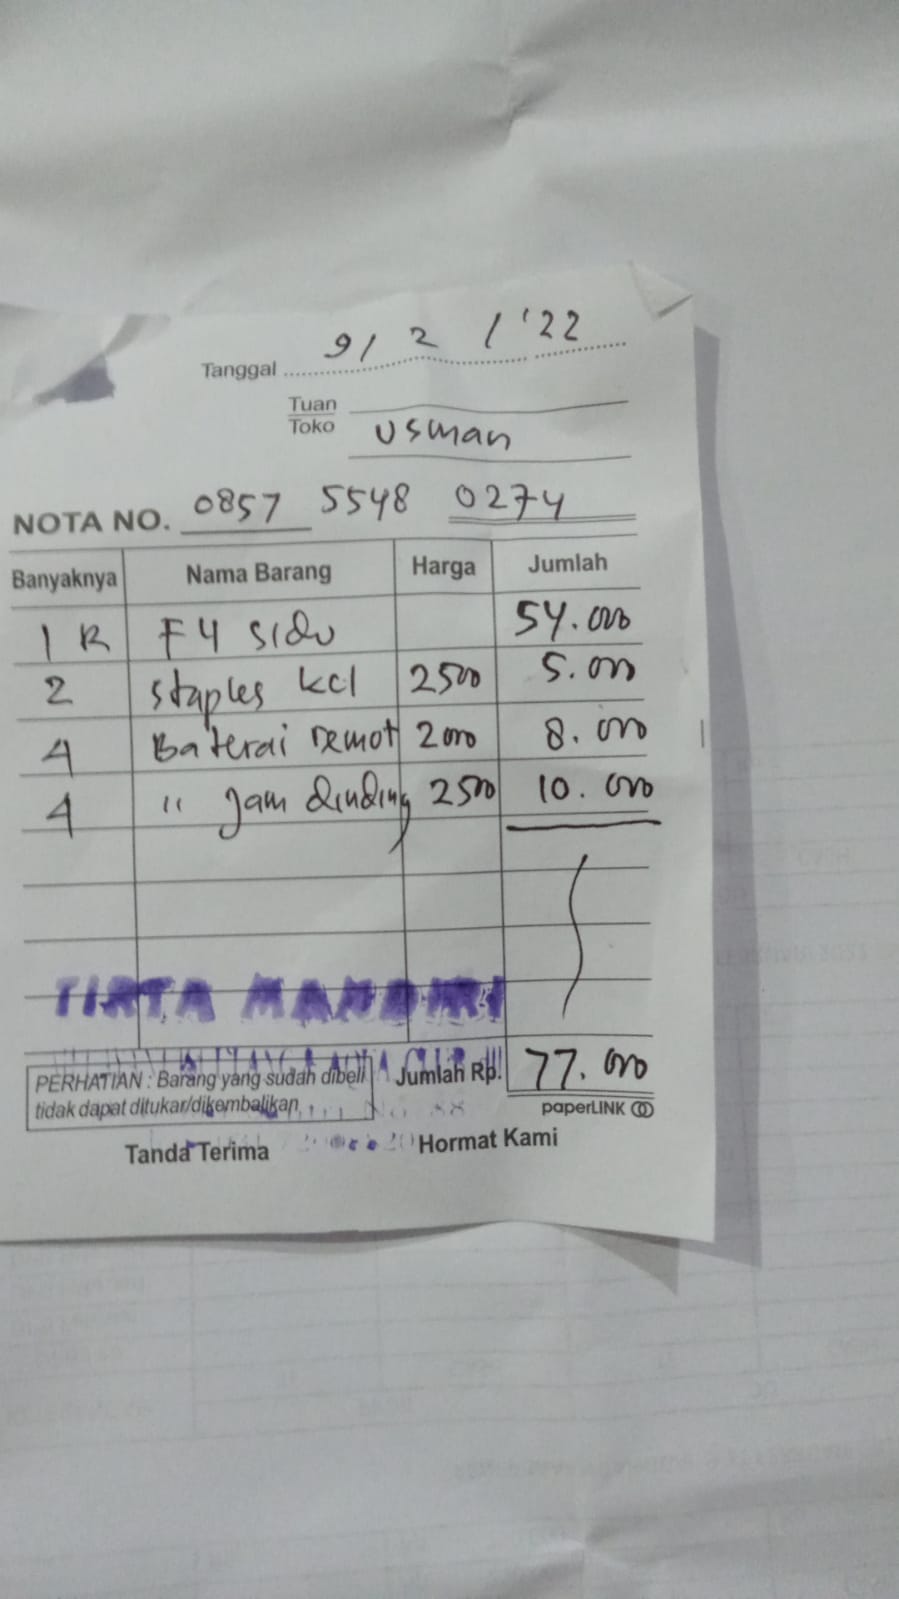 Tanggal 9/ 2 / '22
Tuan
Toko Usman
NOTA NO. 0857 5548 0274
Banyaknya Nama Barang Harga Jumlah
1 R F4 sidu 54.000
2 staples kcl 2500 5.000
4 Baterai remot 2000 8.000
4 " Jam dinding 2500 10.000
TIRTA MANDIRI
PERHATIAN : Barang yang sudah dibeli Jumlah Rp. 77.000
tidak dapat ditukar/dikembalikan
paperLINK
Tanda Terima Hormat Kami